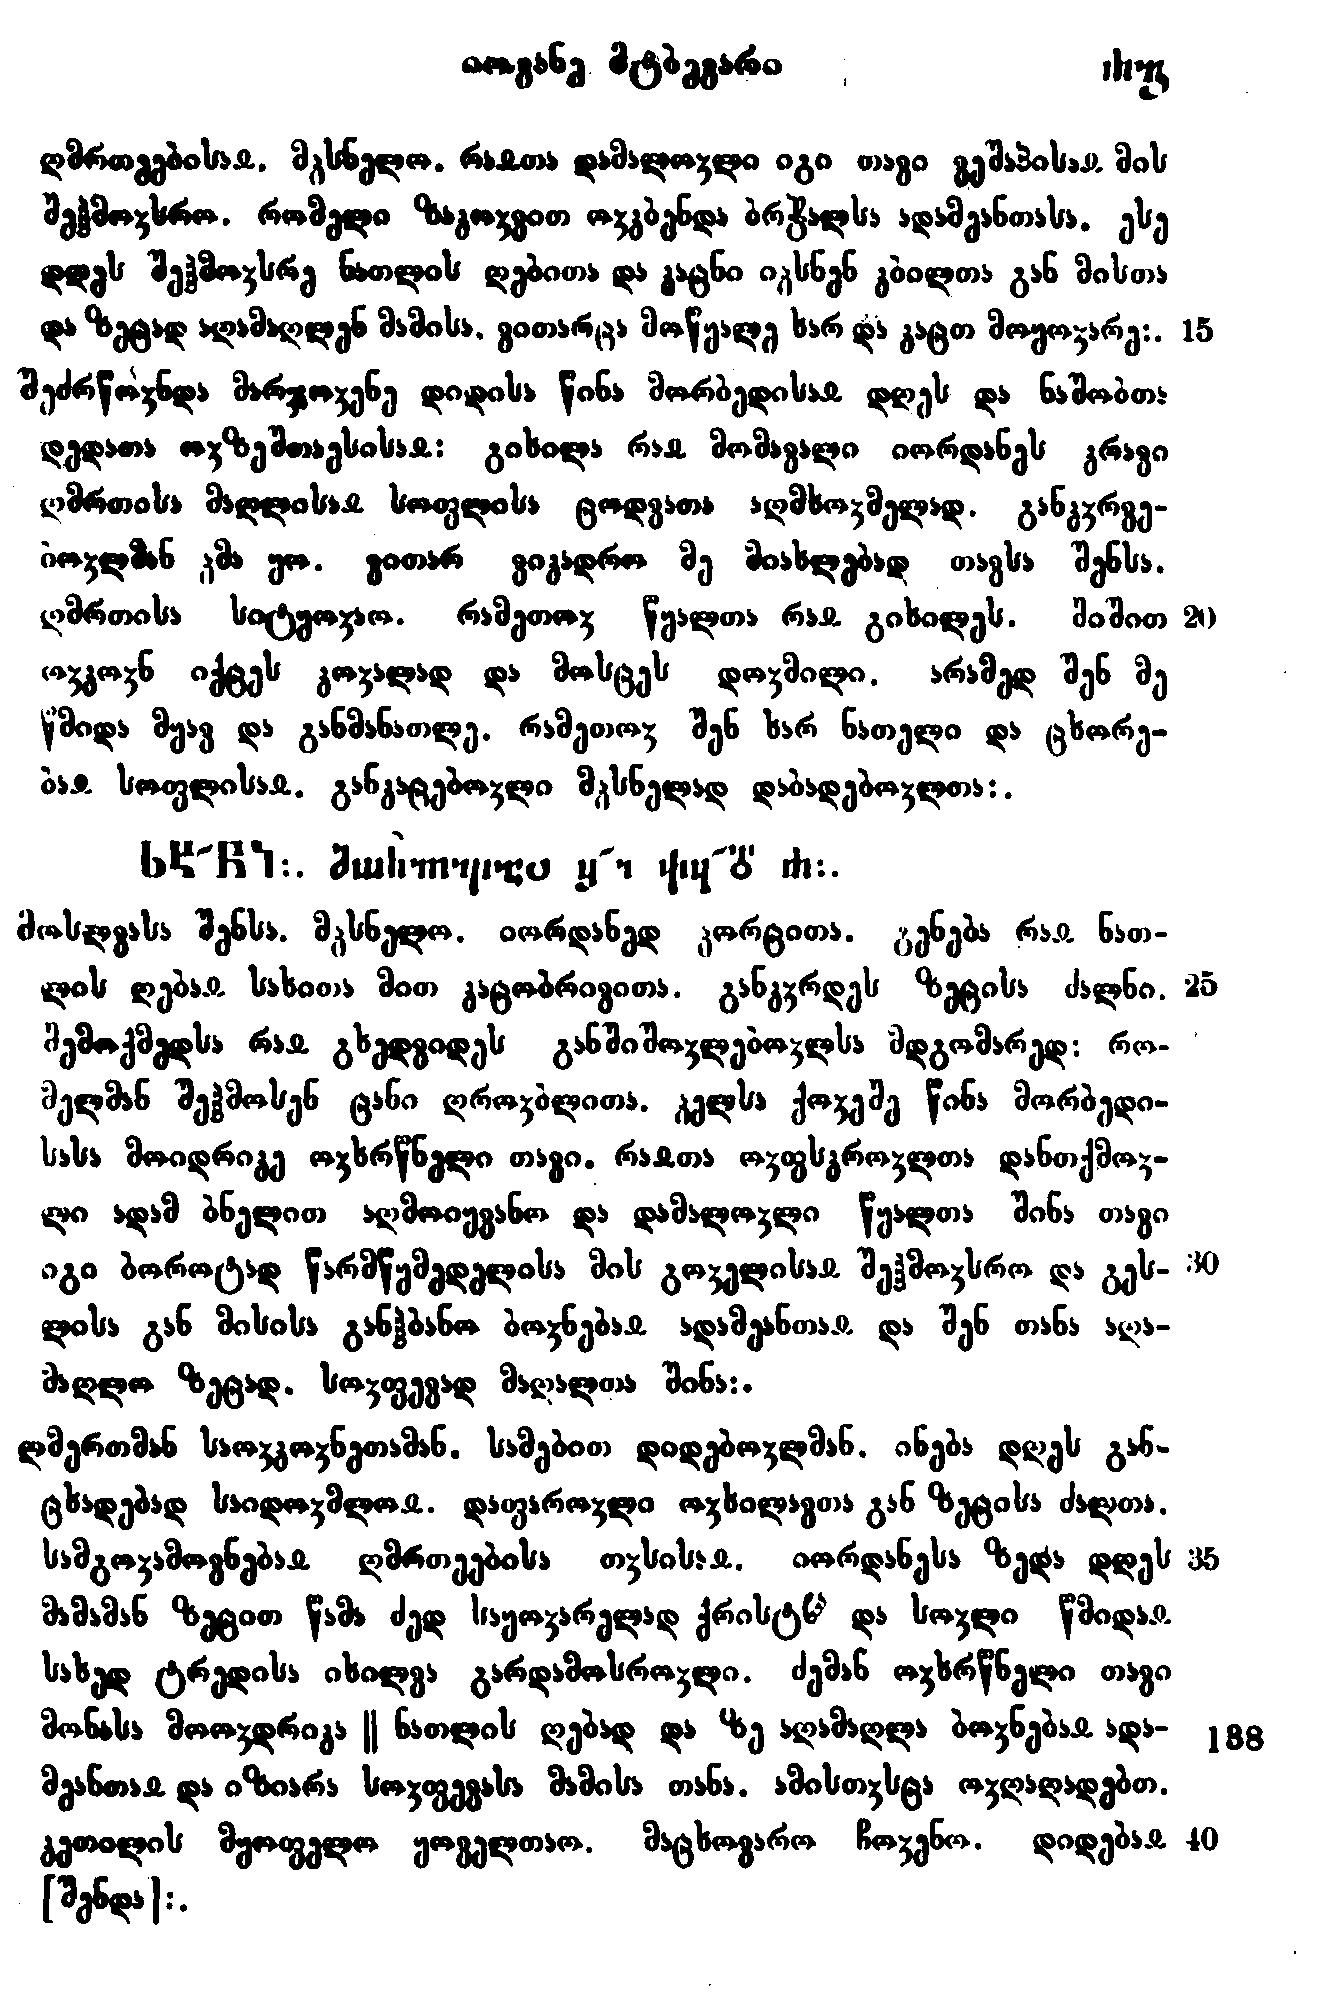 იოვანე მტბევარი
ღმრთეებისაჲ. მჴსნელო. რაჲთა დამალოჳლი იგი თავი ვეშაპისაჲ მის
შეჰმოჳსრო. რომელი ზაკოჳვით ოჳკბენდა ბრჭალსა ადამეანთასა. ესე
დღეს შეჰმოჳსრე ნათლის ღებითა და კაცნი იჴსნენ კბილთა გან მისთა
და ზეცად აღამაღლენ მამისა. ვითარცა მოწყალე ხარ და კაცთ მოყოჳარე:. 15
შეძრწოჳნდა მარჯოჳენე დიდისა წინა მორბედისაჲ დღეს და ნაშობთა
დედათა ოჳზეშთაესისაჲ: გიხილა რაჲ მომავალი იორდანეს კრავი
ღმრთისა მაღლისაჲ სოფლისა ცოდვათა აღმხოჳმელად. განკჳრვე-
ბოჳლმან ჴმა ყო. ვითარ ვიკადრო მე მიახლებად თავსა შენსა.
ღმრთისა სიტყოჳაო. რამეთოჳ წყალთა რაჲ გიხილეს. შიშით 20
ოჳკოჳნ იქცეს გოჳალად და მოსცეს დოჳმილი. არამედ შენ მე
წმიდა მყავ და განმანათლე. რამეთოჳ შენ ხარ ნათელი და ცხორე-
ბაჲ სოფლისაჲ. განკაცებოჳლი მჴსნელად დაბადებოჳლთა:.
მოსლვასა შენსა. მჴსნელო. იორდანედ ჴორცითა. ჴენება რაჲ ნათ-
ლის ღებაჲ სახითა მით კაცობრივითა. განკჳრდეს ზეცისა ძალნი. 25
შემოქმედსა რაჲ გხედვიდეს განშიშოჳლებოჳლსა მდგომარედ: რო-
მელმან შეჰმოსენ ცანი ღროჳბლითა. ჴელსა ქოჳეშე წინა მორბედი-
სასა მოიდრიკე ოჳხრწნელი თავი. რაჲთა ოჳფსკროჳლთა დანთქმოჳ-
ლი ადამ ბნელით აღმოიყვანო და დამალოჳლი წყალთა შინა თავი
იგი ბოროტად წარმწყმედელისა მის გოჳელისაჲ შეჰმოჳსრო და გეს- 30
ლისა გან მისისა განჰბანო ბოჳნებაჲ ადამეანთაჲ და შენ თანა აღა-
მაღლო ზეცად. სოჳფევად მაღალთა შინა:.
ღმერთმან საოჳკოჳნეთამან. სამებით დიდებოჳლმან. ინება დღეს გან-
ცხადებად საიდოჳმლოჲ. დაფაროჳლი ოჳხილავთა გან ზეცისა ძალთა.
სამგოჳამოვნებაჲ ღმრთეებისა თჳსისაჲ. იორდანესა ზედა დღეს 35
მამამან ზეცით წამა ძედ საყოჳარელად ქრისტჱ და სოჳლი წმიდაჲ
სახედ ტრედისა იხილვა გარდამოსროჳლი. ძემან ოჳხრწნელი თავი
მონასა მოოჳდრიკა || ნათლის ღებად და ზე აღამაღლა ბოჳნებაჲ ადა- 138
მეანთაჲ და იზიარა სოჳფევასა მამისა თანა. ამისთჳსცა ოჳღაღადებთ.
კეთილის მყოფელო ყოველთაო. მაცხოვარო ჩოჳენო. დიდებაჲ 40
[შენდა]:.